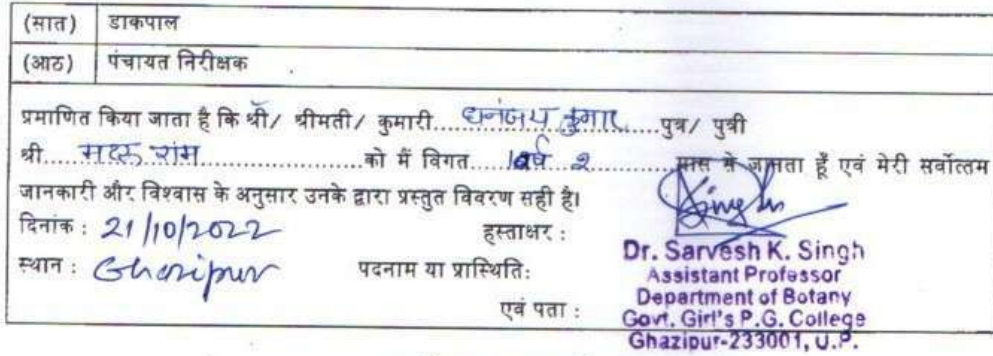 (सात) डाकपाल
(आठ) पंचायत निरीक्षक
प्रमाणित किया जाता है कि श्री/ श्रीमती/ कुमारी....धनंजय कुमार.....पुत्र/ पुत्री
श्री.....राम.....को मैं विगत.....वर्ष 2.....मास से जानता हूँ एवं मेरी सर्वोत्तम
जानकारी और विश्वास के अनुसार उनके द्वारा प्रस्तुत विवरण सही है।
दिनांक : 21/10/2022 हस्ताक्षर :
स्थान : Ghazipur पदनाम या प्रास्थिति:
एवं पता :
Dr. Sarvesh K. Singh
Assistant Professor
Department of Botany
Govt. Girl's P.G. College
Ghazipur-233001, U.P.